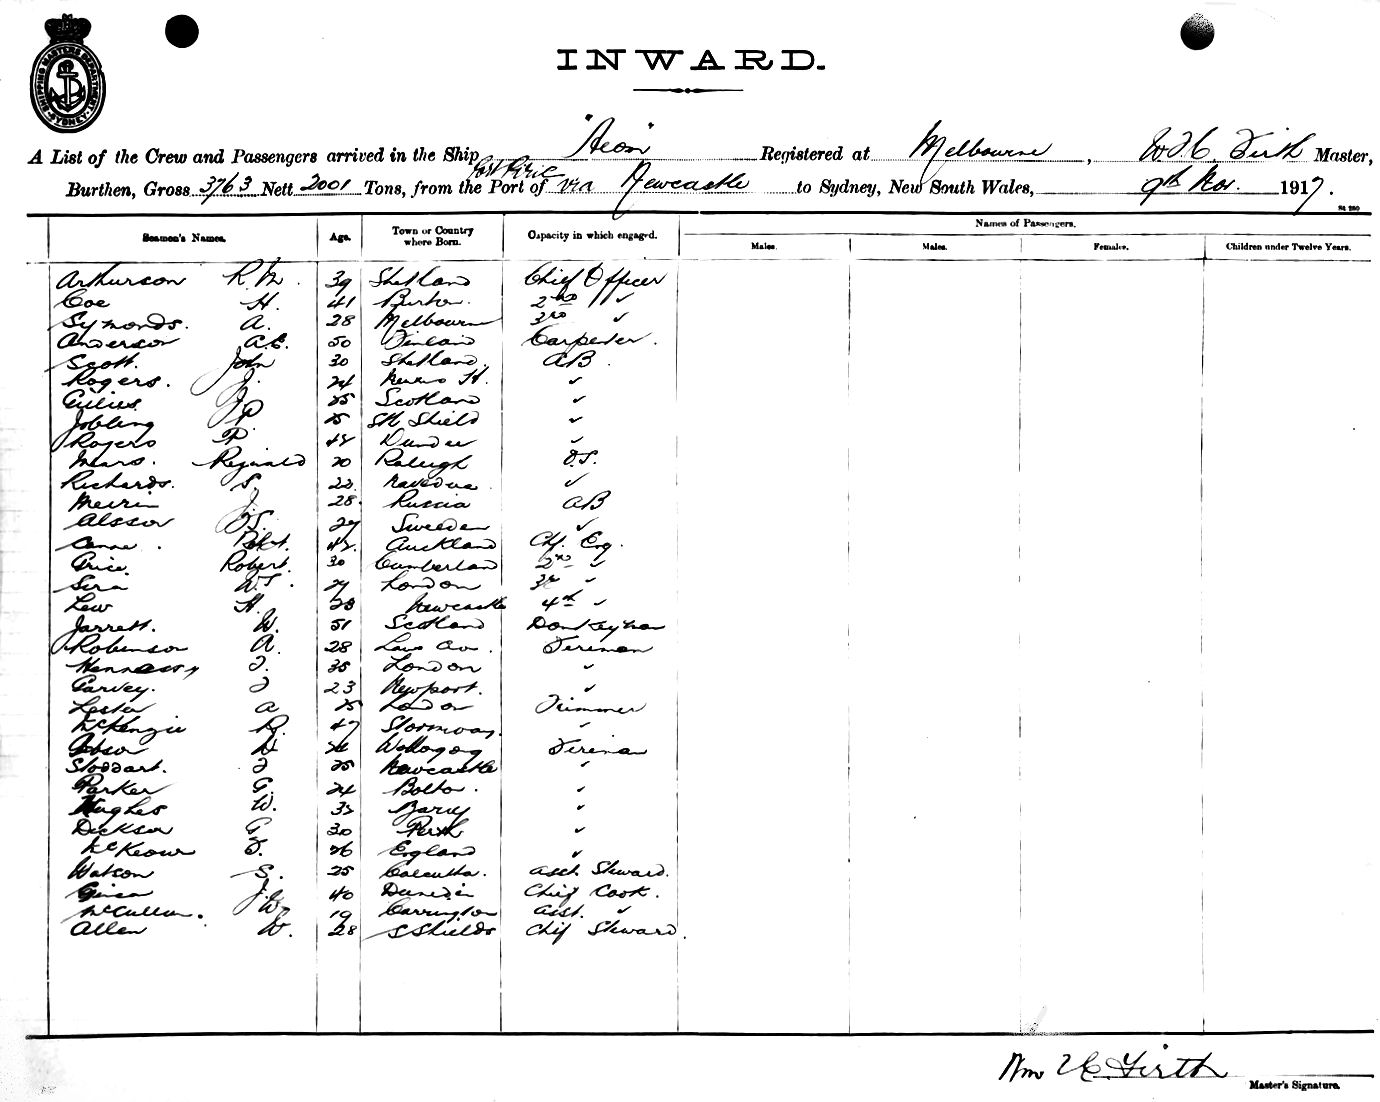 SHIPPING MASTERS DEPARTMENT
SYDNEY
INWARD.
A List of the Crew and Passengers arrived in the Ship "Aeon" Registered at Melbourne, Firth Master,
Port Pirie
Burthen, Gross 3763 Nett 2001 Tons, from the Port of via Newcastle to Sydney, New South Wales, 9th Nov. 1917.
Names of Passengers.
Seamen's Names. Age. Town or Country where Born. Capacity in which engaged. Males. Males. Females. Children under Twelve Years.
Arthurson R.M. 39 Shetland Chief Officer
Coe H. 41 Burton. 2nd "
Symonds. A. 28 Melbourne 3rd "
Anderson A.E. 50 Finland Carpenter.
Scott. John 30 Shetland. AB.
Rogers. J. 24 "
Gillies J. 25 Scotland "
Jobling P 25 Sth Shield "
Rogers P. Dundee "
Mars. Reginald 20 Raleigh O.S.
Richards. S. 22 "
J. 28. Russia AB
S. 27 Sweden "
Robt. 42. Auckland Chf. Eng.
Price. Robert. 30 Cumberland 2nd "
W.S. 27 London 3rd "
Lew H. 28 Newcastle 4th "
Jarrett. W. 51 Scotland Donkeyman
Robinson A. 28 Fireman
Hennessy J. 35 London "
Garvey. J 23 Newport. "
Lester A 25 London Trimmer
McKenzie R. 47 Stornoway. "
D Wollogog Fireman
Stoddart. J 25 Newcastle "
Parker G. 24 Bolton. "
Hughes W. Barry "
Dickson G 30 Perth "
McKeown J. 26 England "
Watson S. 25 Calcutta. Asst. Steward.
J.W. 40 Dunedin Chief Cook.
McCullum. W. 19 Carrington Asst. "
Allen W. 28 S Shields Chif Steward.
Wm Firth
Master's Signature.